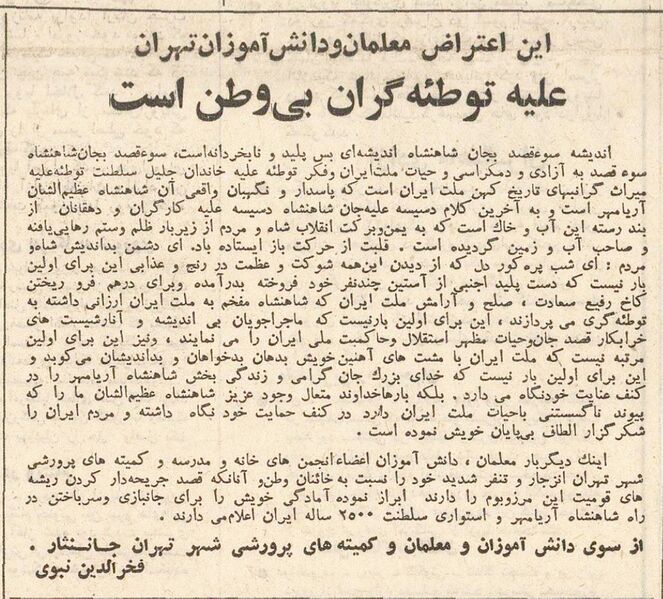 این اعتراض معلمان ودانش آموزان تهران
علیه توطئه گران بی وطن است
اندیشه سوءقصد بجان شاهنشاه اندیشه‌ای بس پلید و نابخردانه‌است، سوءقصد بجان‌شاهنشاه
سوء قصد به آزادی و دمکراسی و حیات ملت‌ایران وفکر توطئه علیه خاندان جلیل سلطنت توطئه‌علیه
میراث گرانبهای تاریخ کهن ملت ایران است که پاسدار و نگهبان واقعی آن شاهنشاه عظیم‌الشان
آریامهر است و به آخرین کلام دسیسه علیه‌جان شاهنشاه دسیسه علیه کارگران و دهقانان از
بند رسته این آب و خاك است که به یمن‌وبرکت انقلاب شاه و مردم از زیربار ظلم وستم رهایی‌یافته
و صاحب آب و زمین گردیده است . قلبت از حرکت باز ایستاده باد. ای دشمن بداندیش شاه‌و
مردم : ای شب پره کور دل که از دیدن این‌همه شوکت و عظمت در رنج و عذابی این برای اولین
بار نیست که دست پلید اجنبی از آستین چندنفر خود فروخته بدرآمده وبرای درهم فرو ریختن
کاخ رفیع سعادت ، صلح و آرامش ملت ایران که شاهنشاه مفخم به ملت ایران ارزانی داشته به
توطئه‌گری می پردازند ، این برای اولین بارنیست که ماجراجویان بی اندیشه و آنارشیست های
خرابکار قصد جان‌وحیات مظهر استقلال وحاکمیت ملی ایران را می نمایند ، ونیز این برای اولین
مرتبه نیست که ملت ایران با مشت های آهنین خویش بدهان بدخواهان و بداندیشان می‌کوبد و
این برای اولین بار نیست که خدای بزرك جان گرامی و زندگی بخش شاهنشاه آریامهر را در
کنف عنایت خودنگاه می دارد . بلکه بارهاخداوند متعال وجود عزیز شاهنشاه عظیم‌الشان ما را که
پیوند ناگسستنی باحیات ملت ایران دارد در کنف حمایت خود نگاه داشته و مردم ایران را
شکرگزار الطاف بی‌پایان خویش نموده است .
اینك دیگربار معلمان ، دانش آموزان اعضاء انجمن های خانه و مدرسه و کمیته های پرورشی
شهر تهران انزجار و تنفر شدید خود را نسبت به خائنان وطن‌و آنانکه قصد جریحه‌دار کردن ریشه
های قومیت این مرزوبوم را دارند ابراز نموده آمادگی خویش را برای جانبازی وسرباختن در
راه شاهنشاه آریامهر و استواری سلطنت ۲۵۰۰ ساله ایران اعلام‌می دارند .
از سوی دانش آموزان و معلمان و کمیته های پرورشی شهر تهران جــانــنثار .
فخرالدین نبوی